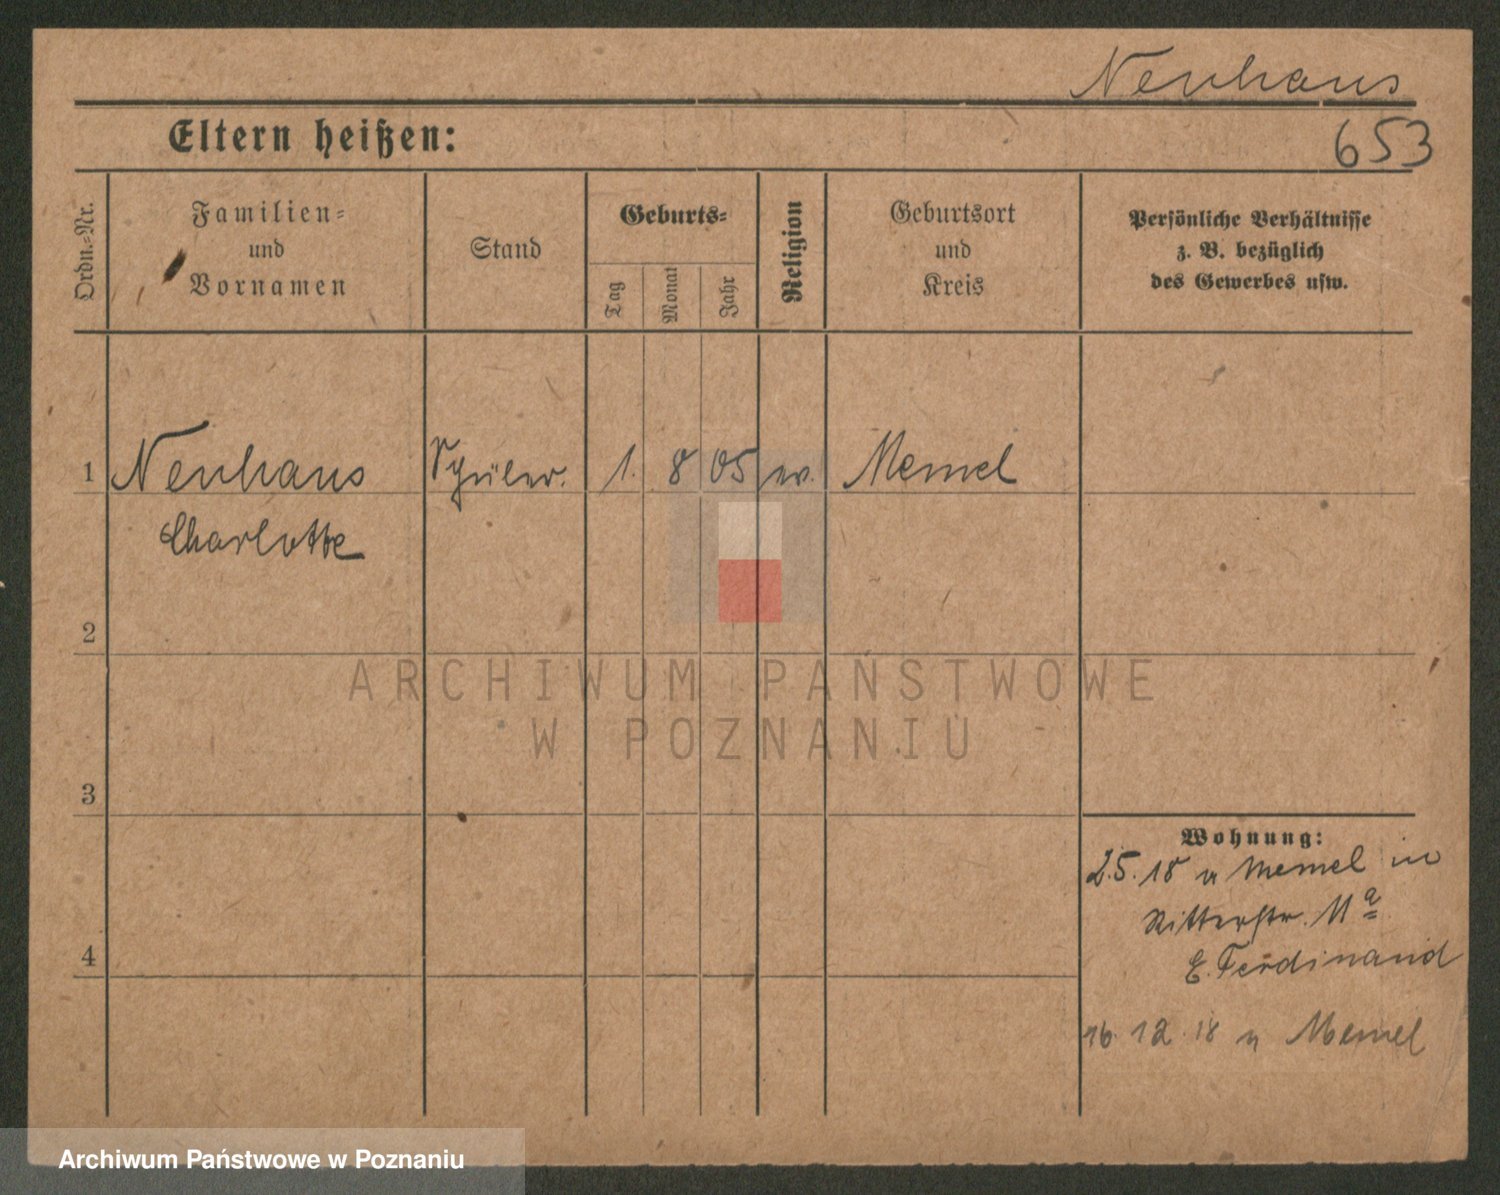 Neuhaus
Eltern heißen:
653
Ordn.=Nr.
Familien=
und
Vornamen
Stand
Geburts=
Tag
Monat
Jahr
Religion
Geburtsort
und
Kreis
Persönliche Verhältnisse
z. B. bezüglich
des Gewerbes usw.
1 Neuhaus Schüler. 1. 8 05 ev. Memel
Charlotte
2
ARCHIWUM PAŃSTWOWE
W POZNANIU
3
Wohnung:
2.5.18 v Memel in
Ritterstr. 11a
E. Ferdinand
4
16. 12. 18 n Memel
Archiwum Państwowe w Poznaniu